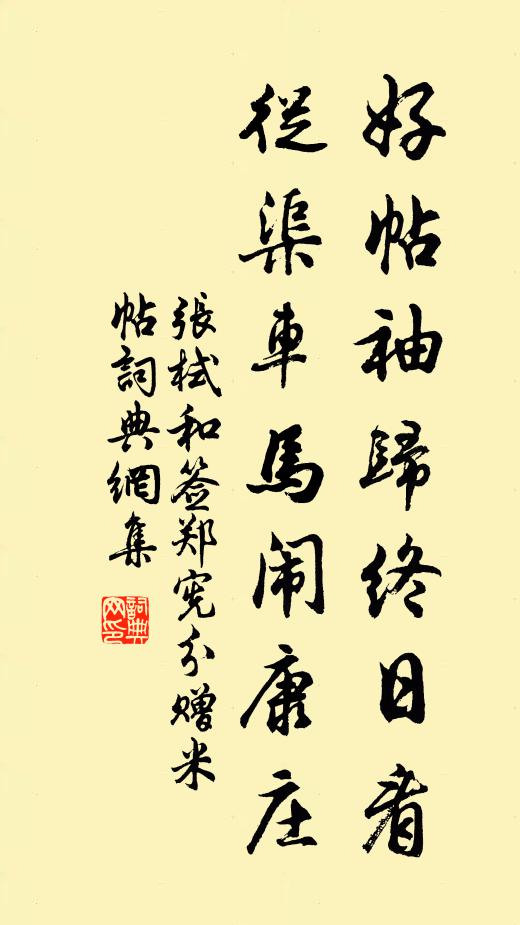 好帖袖歸終日看
從渠車馬闹康庄
張栻和签郑宪分赠米
帖詞典網集
詞典网印